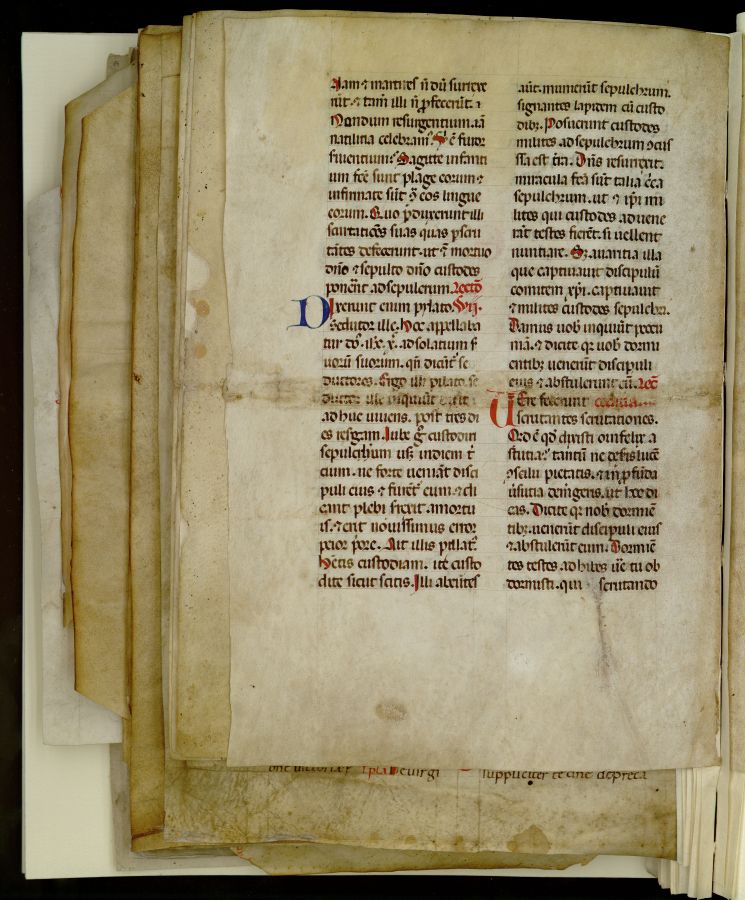 Nam ⁊ martires ñ dũ surrexe
rũt. ⁊ tam̃ illi ñ ꝓfecerũt. ⁊
Nondum resurgentium iã
natilitia celebram᷒. S; ẽ furor
furentium: Sagitte infanti
um fc̃e sunt plage eorum ⁊
infirmate sũt ꝯ̃ eos lingue
eorum. Quo ꝑduxerunt illi
scrutatiões suas quas ꝑscru
tãtes defecerunt. ut ⁊ mortuo
dñõ ⁊ sepulto dñõ custodes
ponerẽt ad sepulcrum. lectõ
Dixerunt enim pylato. viij.
Seductor ille. hoc appellaba
tur dõ. ihc̃. x̃. ad solatium s̃
uorũ suorum. qñ dicũt᷒ se
ductores. Ergo illi pilato. se
ductor ille inquiũt
adhuc uiuens. post tres di
es resurgam. Iube g̃ custodiri
sepulchrum usq; in diem t̃
cium. ne forte ueniãt disci
puli eius ⁊ furẽt᷒ eum ⁊ di
cant plebi surrexit a mortu
is. ⁊ erit nouissimus error
peior p̃ore. Ait illis pillat᷒.
habetis custodiam. ite custo
dite sicut scitis. Illi abeũtes
aũt. munierũt sepulchrum.
signantes lapidem cũ custo
dib;. Posuerunt custodes
milites ad sepulchrum ꝯcus
ssa est tr̃a. Dñs resurrexit.
miracula fc̃a sũt talia c̃ca
sepulchrum. ut ⁊ ip̃i mi
lites qui custodes aduene
rãt testes fierẽt. si uellent
nuntiare. S; auaritia illa
que captiuauit discipulũ
comitem xp̃i. captiuauit
⁊ milites custodes sepulchri.
Damus uob̃ inquiũt pecu
niã. ⁊ dicite qr uob̃ dormi
entib; uenerũt discipuli
eius ⁊ abstulerunt eũ. lec̃
Uere fecerunt
scrutantes scrutationes.
Qid ẽ qd̃ dixisti o infelix a
stutia: tantũ ne deseris lucẽ
ꝯsilii pietatis. ⁊ in ꝓfũda
uersutia demergeris. ut hoc di
cas. Dicite qr nob̃ dormiẽ
tib;. uenerũt discipuli eius
⁊ abstulerũt eum. Dormiẽ
tes testes adhibes uẽ tu ob
dormisti. qui scrutando
suppliciter te dñe depreca